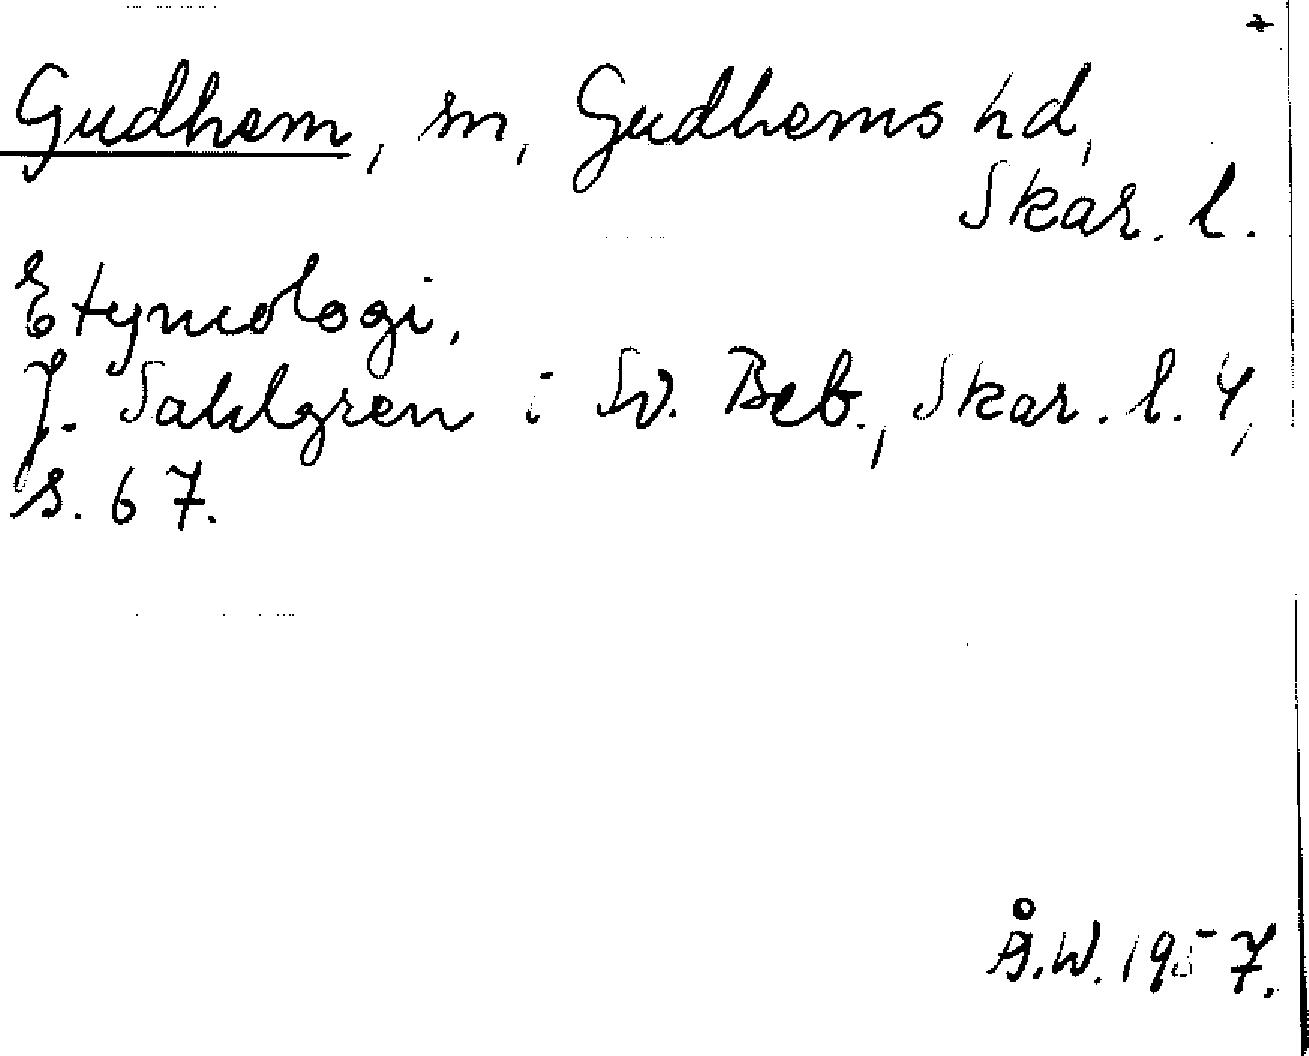 Gudhem, sn, Gudhems hd,
Skar. l.
Etymologi,
J. Sahlgren i Sv. Beb., Skar. l. 4,
s. 67.
Å.W. 1957.